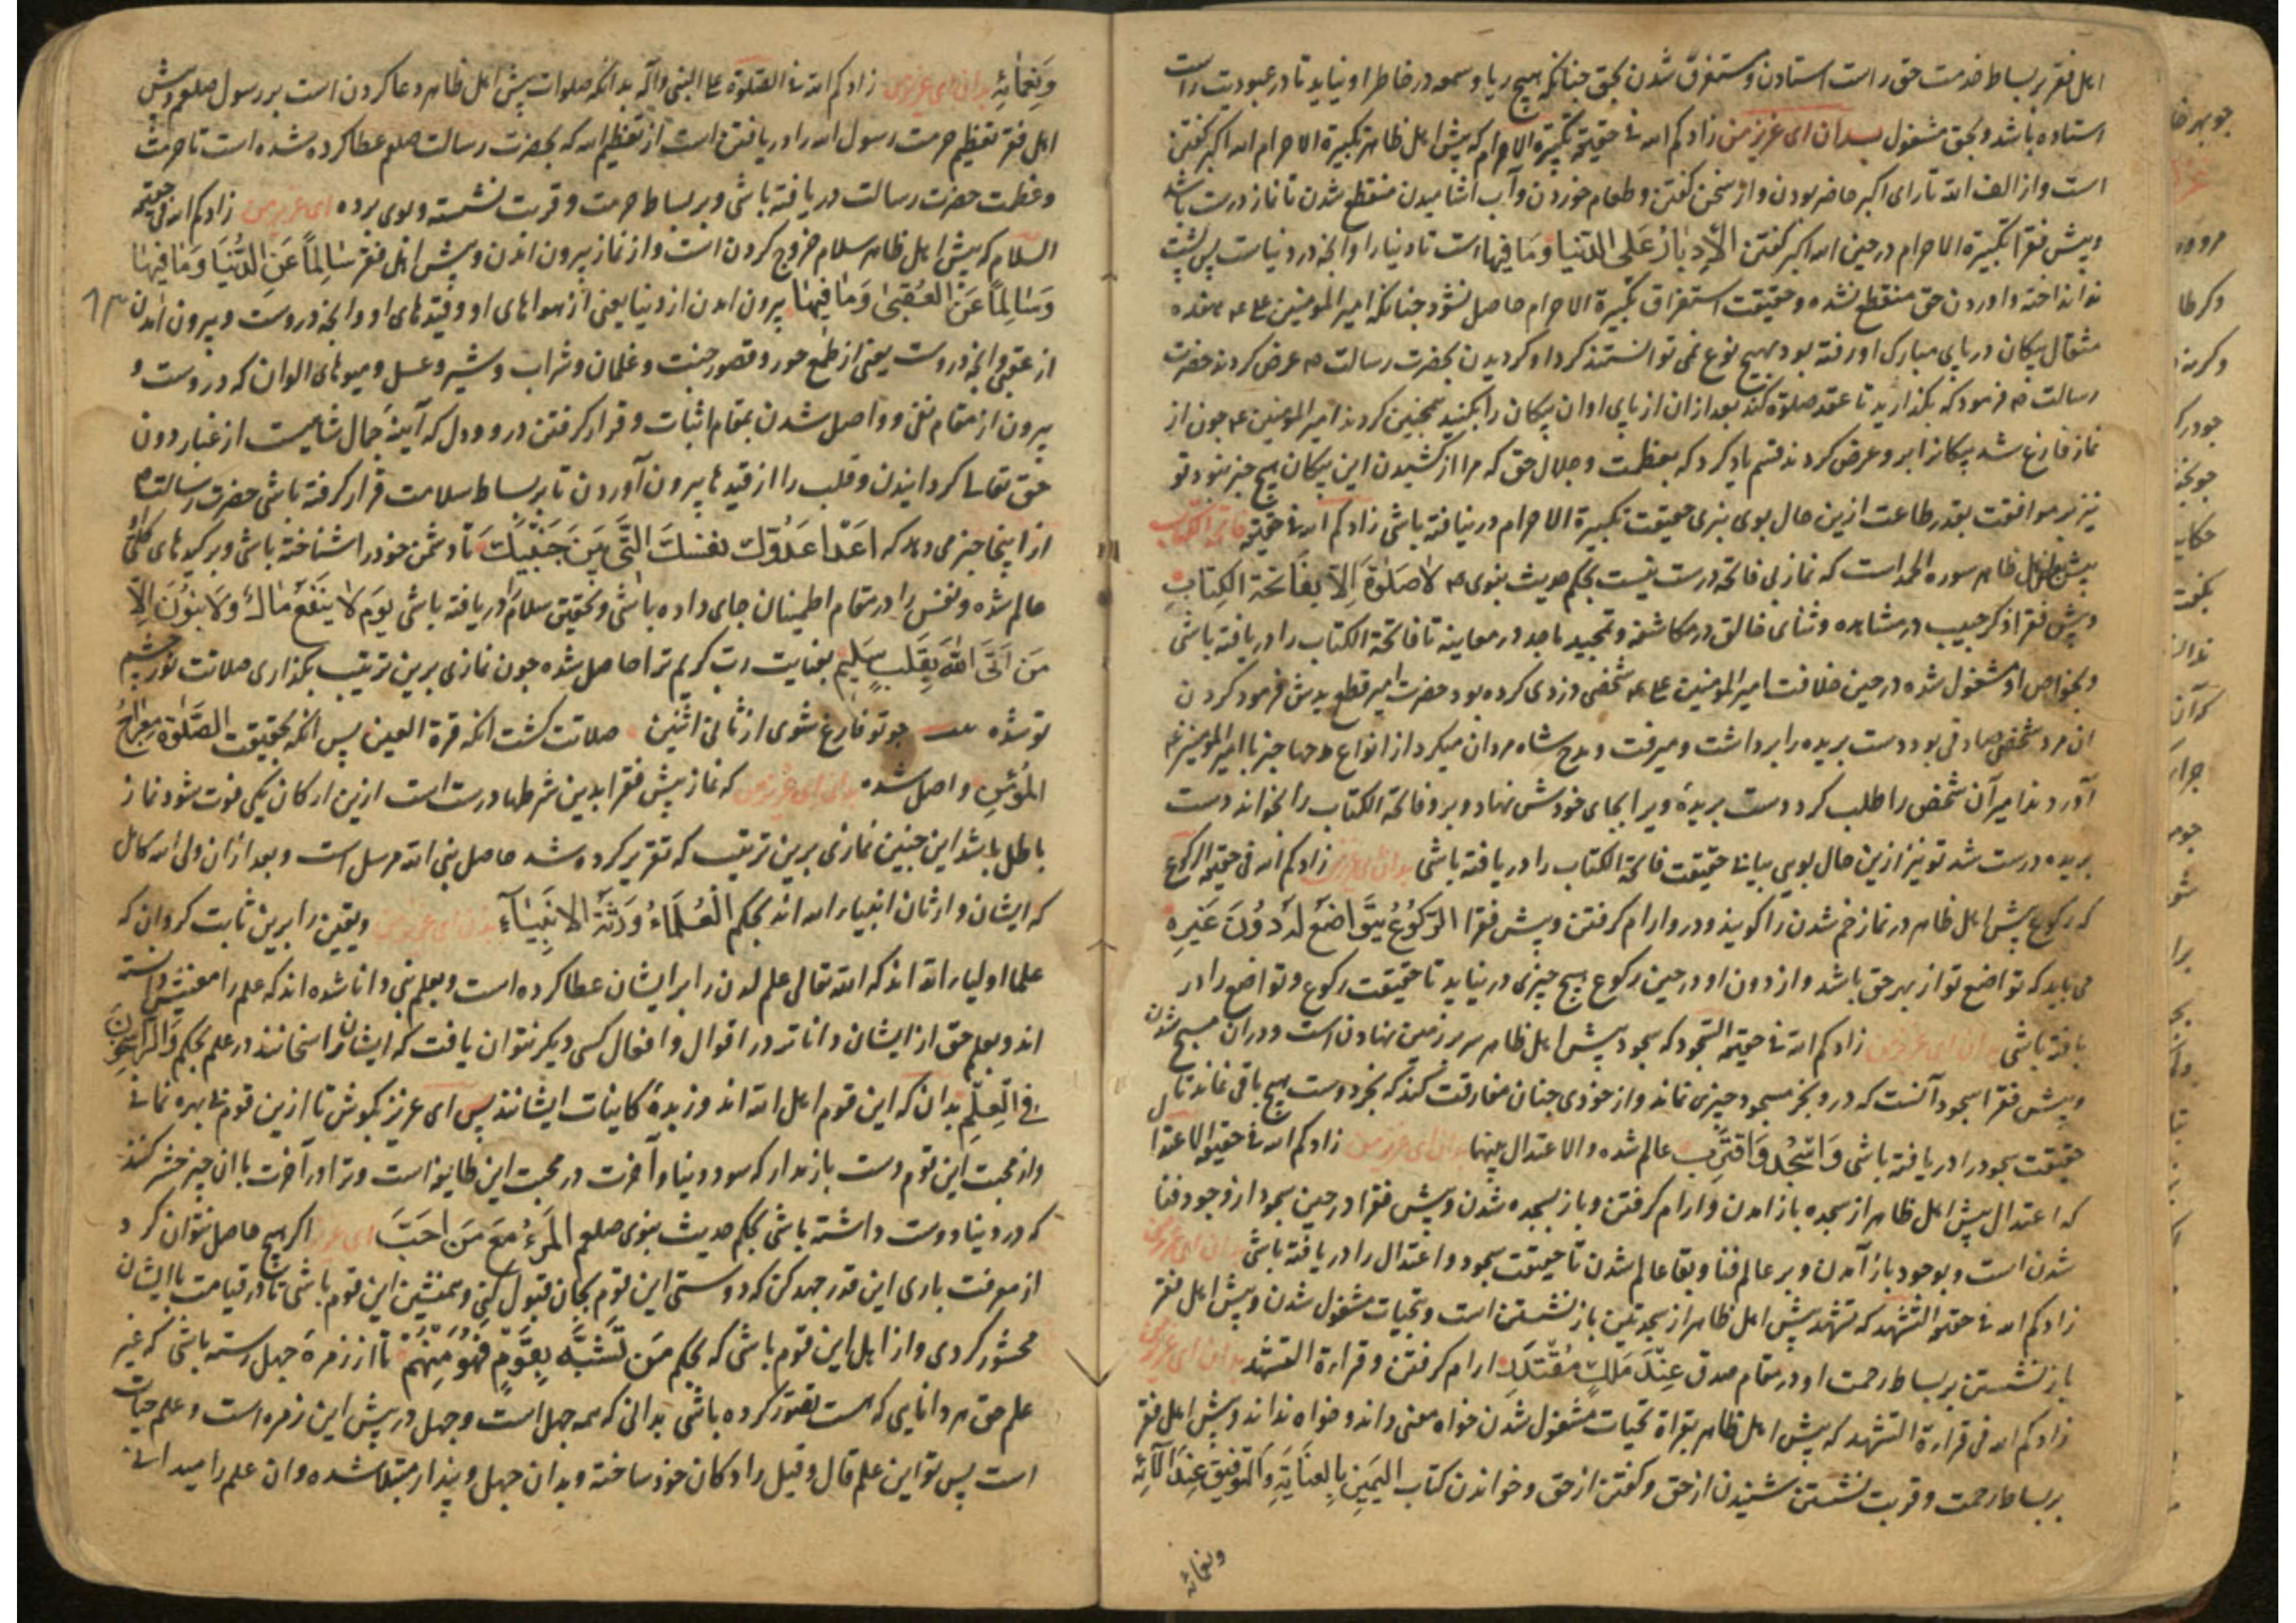 اهل فقر بر بساط خدمت حق راست استادن و مستغرق شدن بحق چنانکه هیچ ریا و سمعه در خاطر او نیاید تا در عبودیت راست
استاده باشد و بحق مشغول بدان ای عزیز من زادکم الله فی حقیقة تکبیرة الاحرام که پیش اهل ظاهر تکبیرة الاحرام الله اکبر کفتن
است و از الف الله تا رای اکبر حاضر بودن و از سخن کفتن و طعام خوردن و آب اشامیدن منقطع شدن تا نماز درست باشد
و پیش فقرا تکبیرة الاحرام در حین الله اکبر کفتن الادبار علی الدنیا و ما فیها است تا دنیا را و انچه در دنیاست پس پشت
نه انداخته و اوردن حق منقطع نشده و حقیقت استغراق تکبیرة الاحرام حاصل نشود چنانکه امیر المومنین علی
مثقال پیکان در پای مبارک او رفته بود بهیچ نوع نمی توانستند کرد او کردیدن بحضرت رسالت ص عرض کردند حضرت
رسالت ص فرمود که بکذارید تا عقد صلوة کند بعد ازان از پای او ان پیکان را بکشید همچنین کردند امیر المومنین ع چون از
نماز فارغ شد پیکانرا برو عرض کردند قسم یاد کرد که بعظمت و جلال حق که مرا از کشیدن این پیکان هیچ خبر نبود تو
نیز بر موافقت بقدر طاعت ازین حال بوی بنری حقیقت تکبیرة الاحرام در نیافته باشی زادکم الله فی حقیقة فاتحة الکتاب
پیش اهل ظاهر سوره الحمد است که نماز بی فاتحه درست نیست بحکم حدیث نبوی ص لا صلوة الا بفاتحة الکتاب
و پیش فقرا ذکر حبیب در مشاهده و ثنای خالق در مکاشفه و تمجید ماجد در معاینه تا فاتحة الکتاب را دریافته باشی
و بخواص او مشغول شده در حین خلافت امیر المومنین علی ع شخصی دزدی کرده بود حضرت امیر قطع یدش فرمود کردن
ان مرد شخصی صادقی بود دست بریده را برداشت و میرفت و مدح شاه مردان میکرد از انواع مدحها خبر با امیر المومنین ع
آوردند امیر آن شخص را طلب کرد دست بریدهٔ ویرا بجای خودش نهاد و برو فاتحة الکتاب را بخواند دست
بریده درست شد تو نیز ازین حال بویی بیابی حقیقت فاتحة الکتاب را دریافته باشی بدان ای عزیز من زادکم الله فی حقیقة الرکوع
که رکوع پیش اهل ظاهر در نماز خم شدن را کویند و درو ارام کرفتن و پیش فقرا الرکوع یتواضع له دون غیره
می باید که تواضع تو از بهر حق باشد و از دون او در حین رکوع هیچ چیزی در نیاید تا حقیقت رکوع و تواضع را در
یافته باشی بدان ای عزیز من زادکم الله فی حقیقة السجود که سجود پیش اهل ظاهر سر بر زمین نهادن است و دران مسبح شدن
و پیش فقرا سجود آنست که درو بخر مسجود چیزی نماند و از خودی چنان مفارقت کند که بجز دوست هیچ باقی نماند تا
حقیقت سجود را دریافته باشی وَاسْجُد وَاقتَرِب عالم شده و الاعتدال بینها بدان ای عزیز من زادکم الله فی حقیقة الاعتدال
که اعتدال پیش اهل ظاهر از سجده باز امدن و ارام کرفتن و باز بسجده شدن و پیش فقرا در حین سجود از وجود فنا
شدن است و بوجود باز آمدن و بر عالم فنا و بقا عالم شدن تا حقیقت سجود و اعتدال را دریافته باشی بدان ای عزیز من
زادکم الله فی حقیقة التشهد که تشهد پیش اهل ظاهر از سجدتین باز نشستن است و بتحیات مشغول شدن و پیش اهل فقر
باز نشستن بر بساط رحمت او در مقام صدق عند ملیک مقتدر ارام کرفتن و قراءة التشهد بدان ای عزیز من
زادکم الله فی قراءة التشهد که پیش اهل ظاهر بقراة تحیات مشغول شدن خواه معنی داند و خواه نداند و پیش اهل فقر
بر بساط رحمت و قربت نشستن شنیدن از حق و کفتن از حق و خواندن کتاب الیمین بالعنایة و التوفیق عند آلائه
ونعمائه
وَنِعمائِهِ بدان ای عزیز من زادکم الله فی الصلوة علی النبی و آله بدانکه صلوات پیش اهل ظاهر دعا کردن است بر رسول صلعم و پیش
اهل فقر تعظیم حرمت رسول الله را دریافتن است از تعظیم الله که بحضرت رسالت صلعم عطا کرده شده است تا حرمت
و عظمت حضرت رسالت دریافته باشی و بر بساط حرمت و قربت نشسته و بوی برده ای عزیز من زادکم الله فی حقیقة
السلام که پیش اهل ظاهر سلام خروج کردن است و از نماز بیرون امدن و پیش اهل فقر سالماً عن الدنیا و ما فیها
وَسالِماً عَنِ العُقبیٰ وَما فیها بیرون امدن از دنیا یعنی از هواهای او و قیدهای او و انچه دروست و بیرون امدن
از عقبی و انچه دروست یعنی از طمع حور و قصور جنت و غلمان و شراب و شیر و عسل و میوهای الوان که دروست و
بیرون از مقام نفی و واصل شدن بمقام اثبات و قرار کرفتن درو و دل که آینهٔ جمال شاهیست از غبار دون
حق تعالی کردانیدن و قلب را از قیدها بیرون آوردن تا بر بساط سلامت قرار کرفته باشی حضرت رسالت ص
از اینجا خبر می دهد که اَعدا عَدُوِّکَ نفسک التی بین جنبیک تا دشمن خود را شناخته باشی و بر کیدهای کلی
عالم شده و نفس را در مقام اطمینان جای داده باشی و تحقیق سلام را دریافته باشی یوم لا ینفع مالٌ ولا بنون الا
من اتی الله بقلب سلیم بعنایت رب کریم ترا حاصل شده چون نمازی برین ترتیب بکذاری صلاتت نور چشم
تو شده چو تو فارغ شوی از ثانی اثنین صلاتت کشت انکه قرة العین پس انکه بحقیقت الصلوة معراج
المؤمن واصل شده بدان ای عزیز من که نماز پیش فقرا بدین شرطها درست است ازین ارکان یکی فوت شود نماز
باطل باشد این چنین نمازی برین ترتیب که تقریر کرده شد حاصل نبی الله مرسل است و بعد ازان ولی الله کامل
که ایشان وارثان انبیاء الله اند بحکم العُلماءُ وَرَثَةُ الانبیاء بدان ای عزیز من و یقین را برین ثابت کردان که
علما اولیاء الله اند که الله تعالی علم لدن را بر ایشان عطا کرده است و بعلم نبی دانا شده اند که علم را معنیش دانسته
اند و بعلم حق از ایشان داناتر در اقوال و افعال کسی دیکر نتوان یافت که ایشان راسخانند در علم بحکم والراسخون
فی العلم بدان که این قوم اهل الله اند و زبدهٔ کاینات ایشانند پس ای عزیز بکوش تا ازین قوم بی بهره نمانی
و از محبت این قوم دست باز مدار که سود دنیا و آخرت در محبت این طایفه است و ترا در آخرت با ان چیز حشر کنند
که در دنیا دوست داشته باشی بحکم حدیث نبوی صلعم المرءُ مَعَ مَن احبَّ ای عزیز اکر هیچ حاصل نتوان کرد
از معرفت باری این قدر جهد کن که دوستی این قوم بجان قبول کنی و همنشین این قوم باشی تا در قیامت با ایشان
محشور کردی و از اهل این قوم باشی که بحکم مَن تَشَبَّه بِقَومٍ فَهُوَ مِنهُم تا از زمرهٔ جهل رسته باشی که غیر
علم حق هر دانایی که هست تصور کرده باشی بدانی که همه جهل است و جهل در پیش این زمره است و علم حیات
است پس تو این علم قال و قیل را دکان خود ساخته و بدان جهل و پندار مبتلا شده و ان علم را میدانی